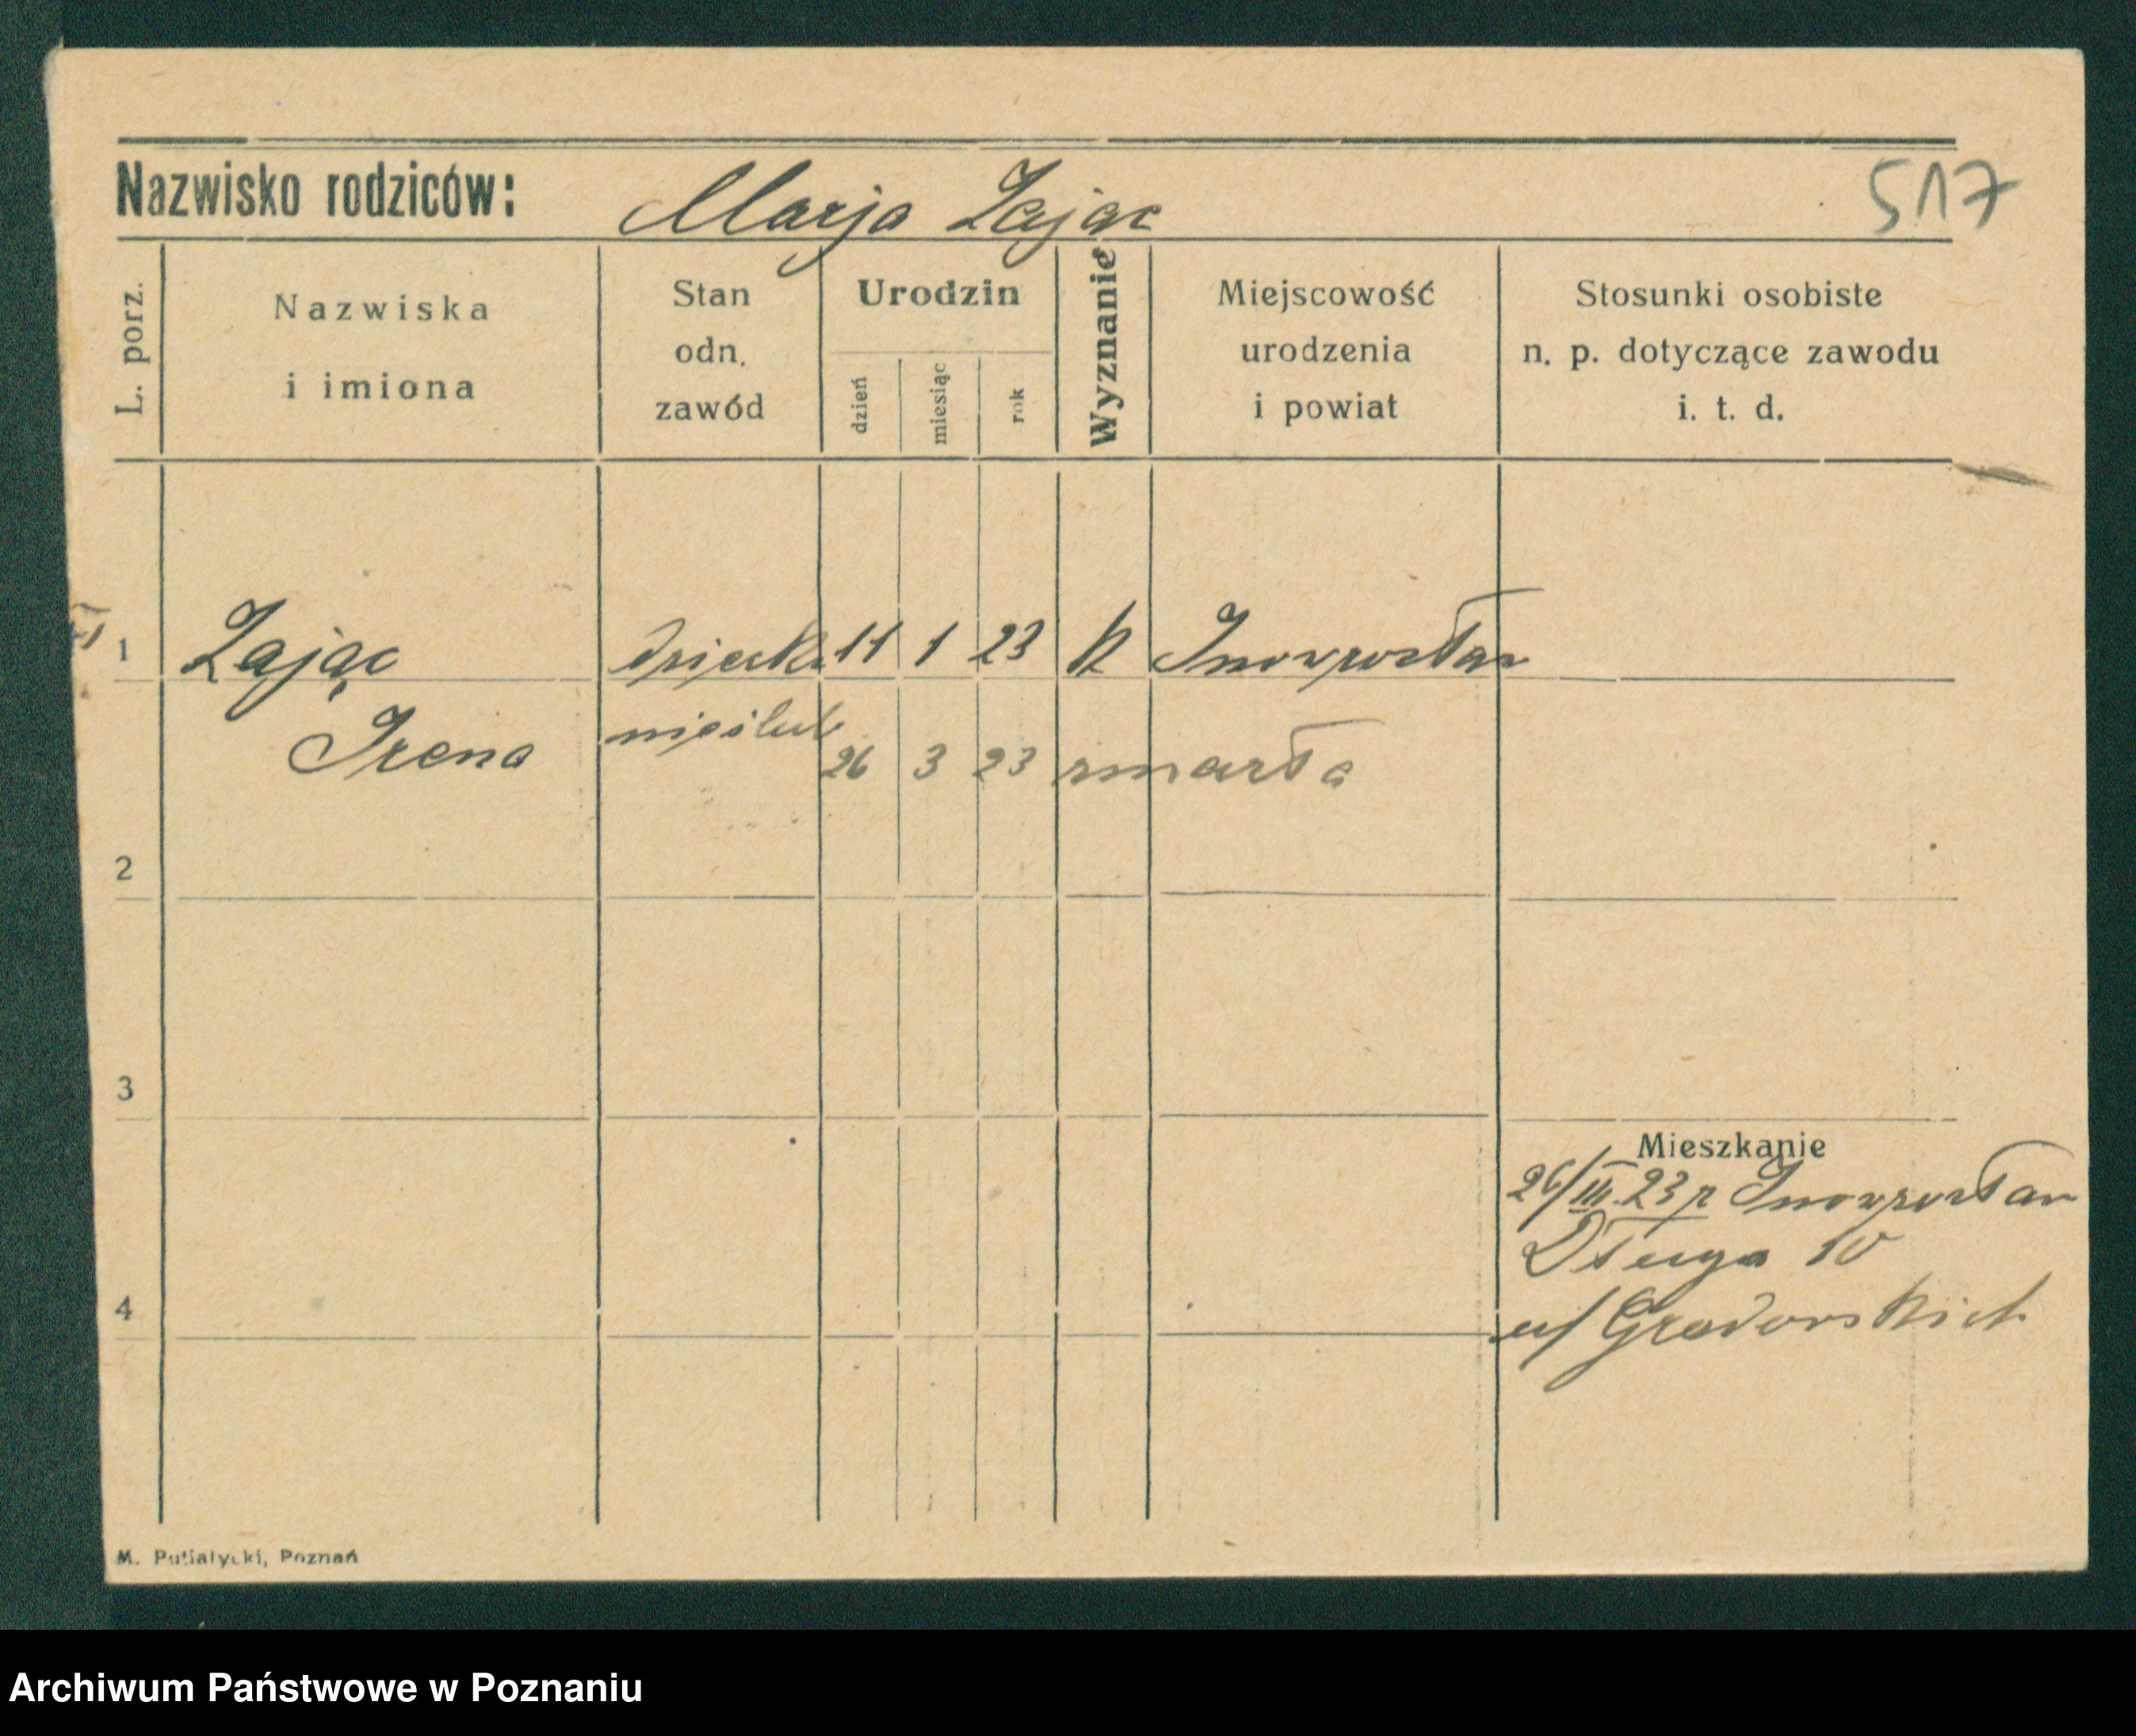 517
Nazwisko rodziców: Marja Zając
L. porz.
Nazwiska i imiona
Stan odn. zawód
Urodzin
dzień
miesiąc
rok
Wyznanie
Miejscowość urodzenia i powiat
Stosunki osobiste n. p. dotyczące zawodu i. t. d.
1 Zając dziecko 11 1 23 k Inowrocław
Irena nieślub
26 3 23 zmarła
2
3
Mieszkanie
26/III.23 r Inowrocław
Długa 10
u/ Gradowskich
4
M. Putiatycki, Poznań
Archiwum Państwowe w Poznaniu